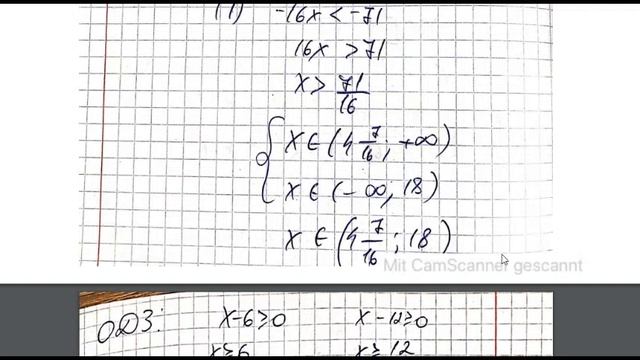 (1) -16x < -71
16x > 71
x > 71/16
{ x ∈ (4 7/16; +∞)
x ∈ (-∞, 18)
x ∈ (4 7/16; 18)
Mit CamScanner gescannt
ОДЗ: x-6≥0 x-12≥0
x≥6 x≥12